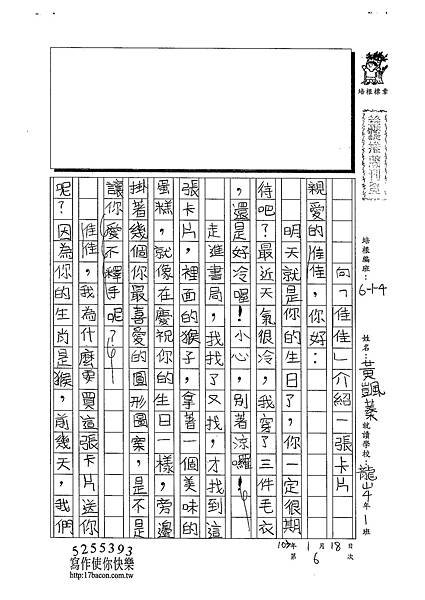 培根標章
培根編班：6-1-4
姓名：黃
就讀學校：龍山 4年1班
103年1月18日
第6次
向「佳佳」介紹一張卡片
親愛的佳佳，你好：
明天就是你的生日了，你一定很期
待吧？最近天氣很冷，我穿了三件毛衣
，還是好冷喔！小心，別著涼囉！
走進書局，我找了又找，才找到這
張卡片，裡面的猴子，拿著一個美味的
蛋糕，就像在慶祝你的生日一樣，旁邊
掛著幾個你最喜愛的圓形圖案，是不是
讓你愛不釋手呢？
佳佳，我為什麼要買這張卡片送你
呢？因為你的生肖是猴，前幾天，我們
5255393
寫作使你快樂
http://17bacon.com.tw